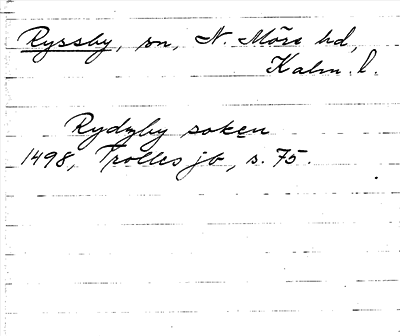 Ryssby, sn, N. Möre hd,
Kalm. l.
Rydzby soken
1498, Trolles jb, s. 75.